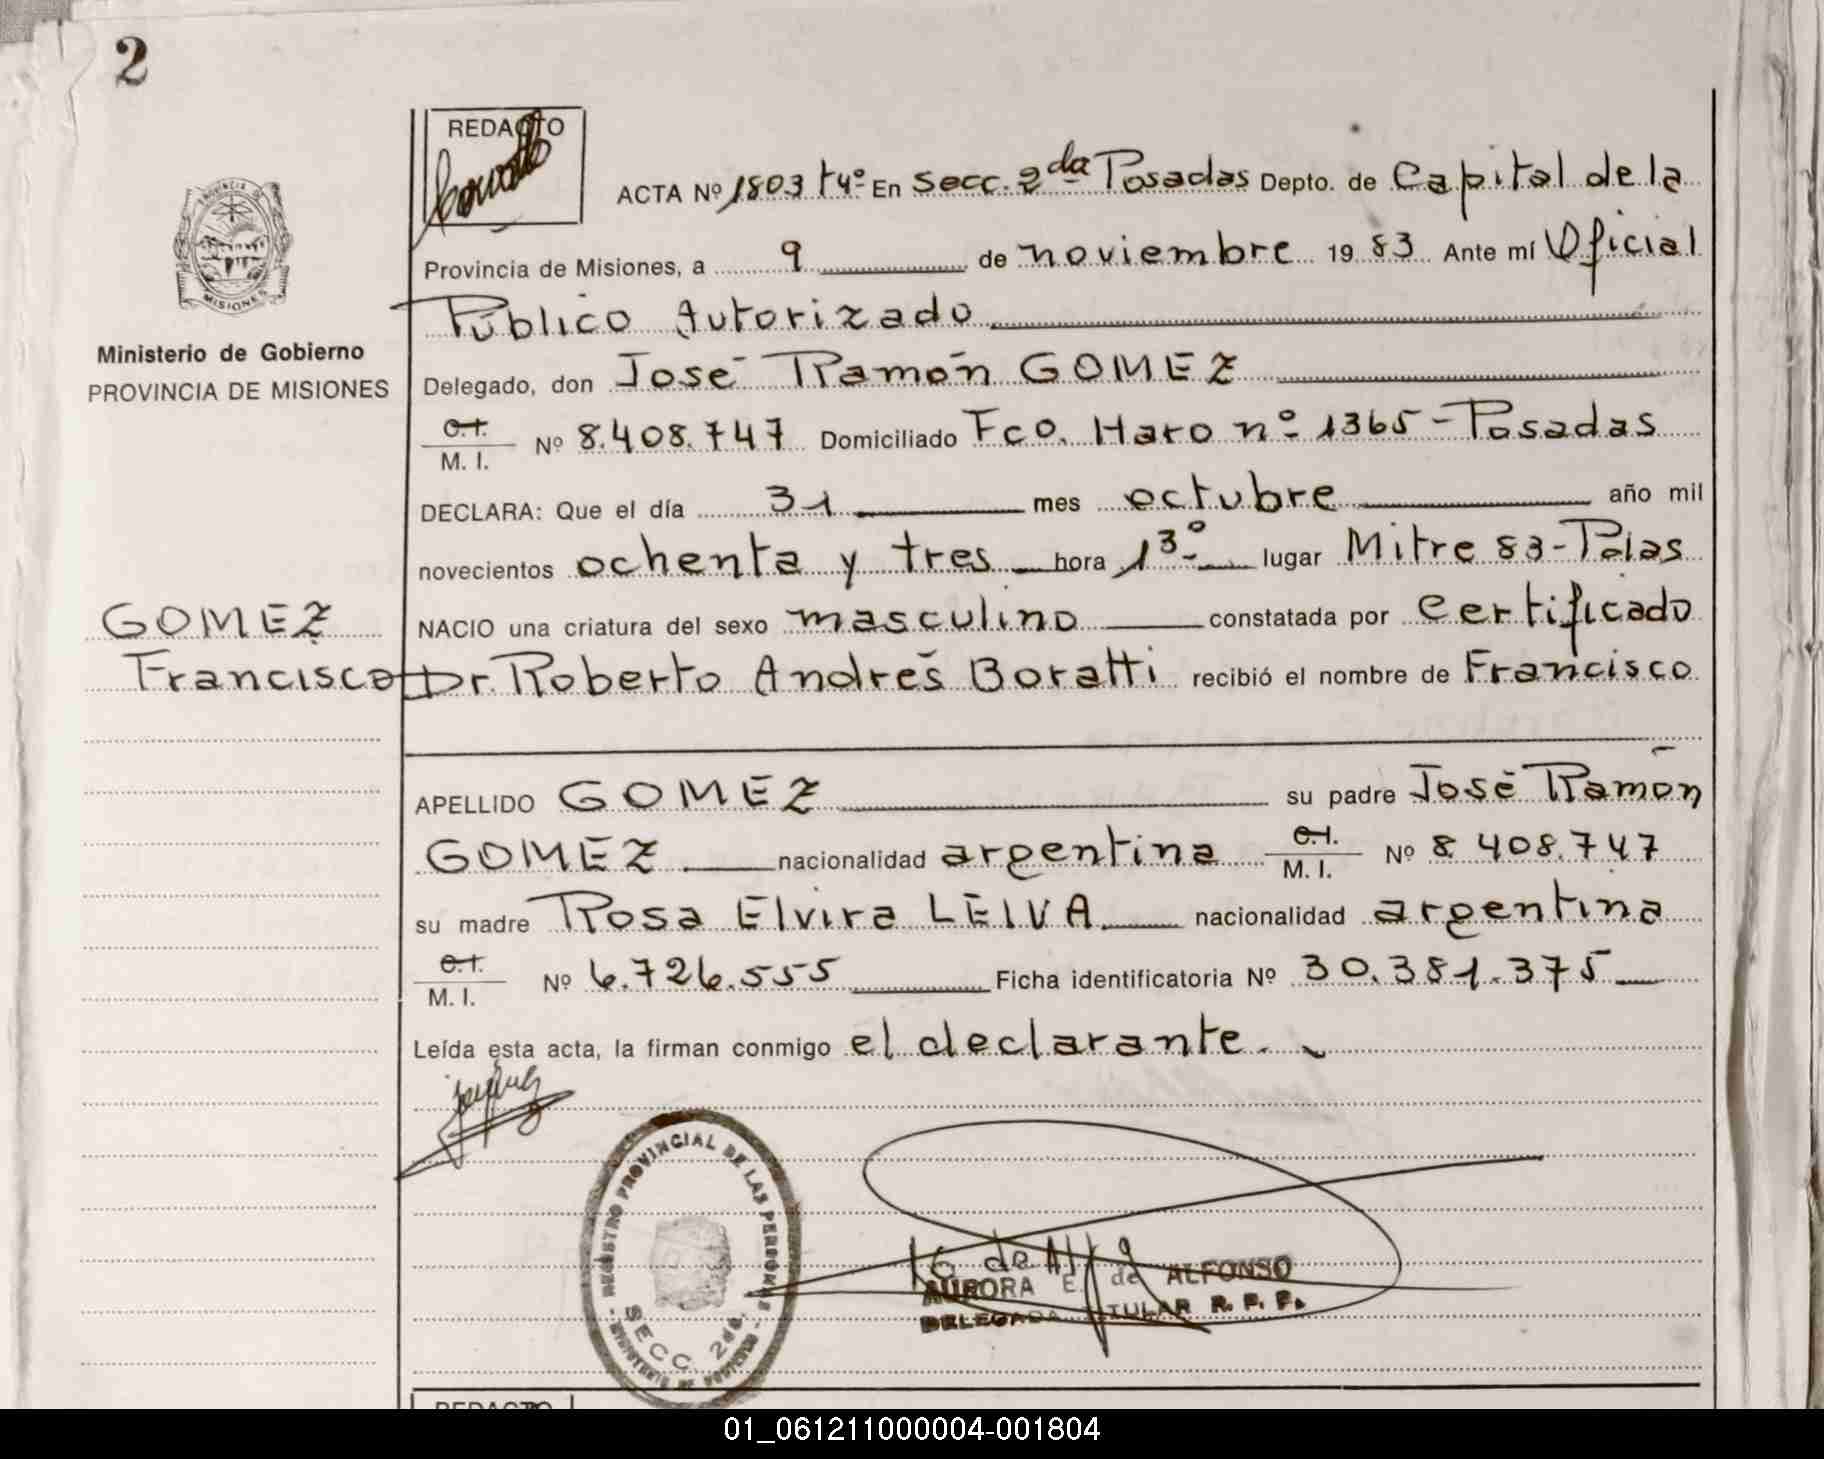 2
REDACTO
ACTA Nº 1803 tº 4º En Secc. 2da Posadas Depto. de Capital de la
Provincia de Misiones, a 9 de noviembre 1983 Ante mí Oficial
Público Autorizado
PROVINCIA DE
MISIONES
Ministerio de Gobierno
PROVINCIA DE MISIONES
Delegado, don José Ramón GOMEZ
C.I.
M. I. Nº 8.408.747 Domiciliado Fco. Haro nº 1365 - Posadas
DECLARA: Que el día 31 mes octubre año mil
novecientos ochenta y tres hora 13º lugar Mitre 83 - Pdas
GOMEZ
NACIO una criatura del sexo masculino constatada por Certificado
Francisco
Dr. Roberto Andrés Boratti recibió el nombre de Francisco
APELLIDO GOMEZ su padre José Ramón
GOMEZ nacionalidad argentina C.I.
M. I. Nº 8.408.747
su madre Rosa Elvira LEIVA nacionalidad argentina
C.I.
M. I. Nº 6.726.555 Ficha identificatoria Nº 30.381.375
Leída esta acta, la firman conmigo el declarante.
REGISTRO PROVINCIAL DE LAS PERSONAS
SECC. 2da.
AURORA E. de ALFONSO
DELEGADA TITULAR R. P. P.
REDACTO
01_061211000004-001804